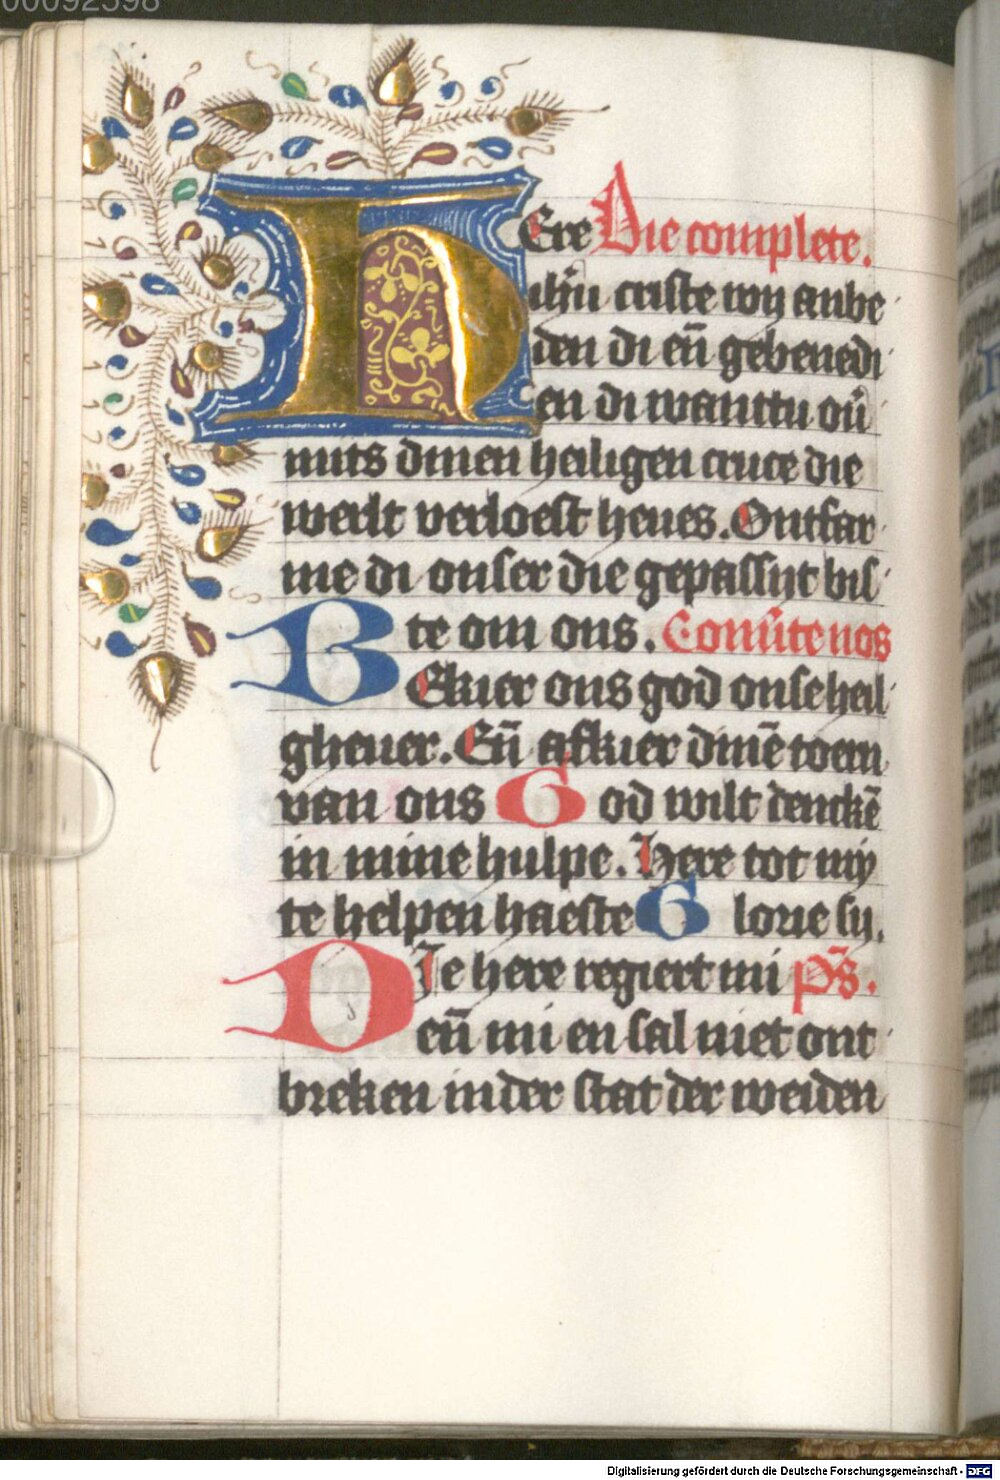 00092598
HEre Die complete.
ihū criste wy anbe
den di eñ gebenedi
en di wanttu oū
mits dinen heiligen cruce die
werlt verloest heues. Ontfar
me di onser die gepassijt bis
te om ons. Conūte nos
BEkier ons god onse heil
gheuer. Eñ afkier dinē toern
van ons God wilt denckē
in mine hulpe. Here tot my
te helpen haeste Glorie sy.
DIe here regiert mi Ps̄.
eñ mi en sal niet ont
breken in der stat der weiden
Digitalisierung gefördert durch die Deutsche Forschungsgemeinschaft - DFG